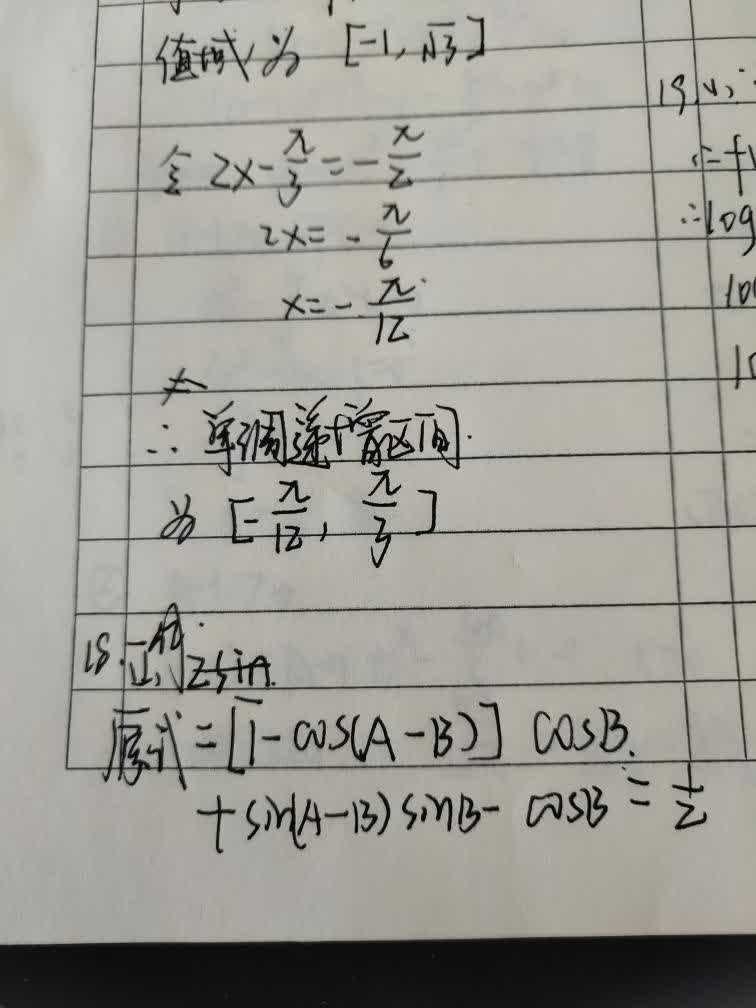 值域为 [-1, √3]
令 2x - π/3 = -π/2
2x = - π/6
x = - π/12
∴ 单调递增区间.
为 [-π/12, π/3]
18.
2sinA
原式 = [1 - cos(A-B)] cosB.
+ sin(A-B) sinB - cosB = 1/2
19
∴ log